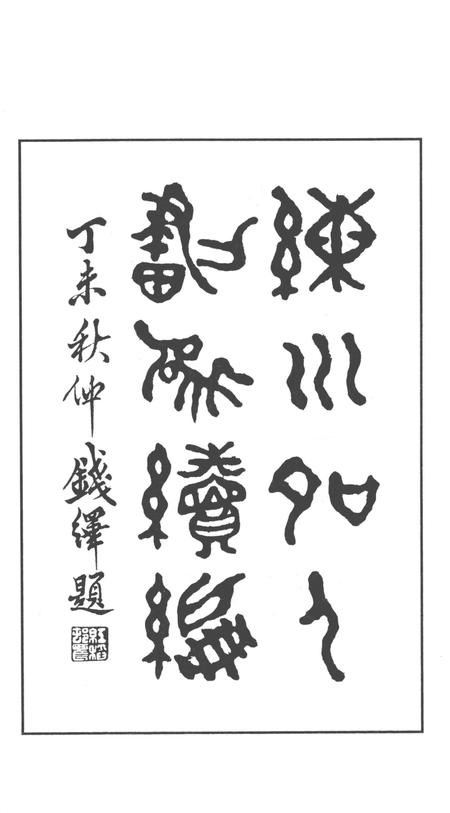 練川名人
畫象續編
丁未秋仲錢繹題